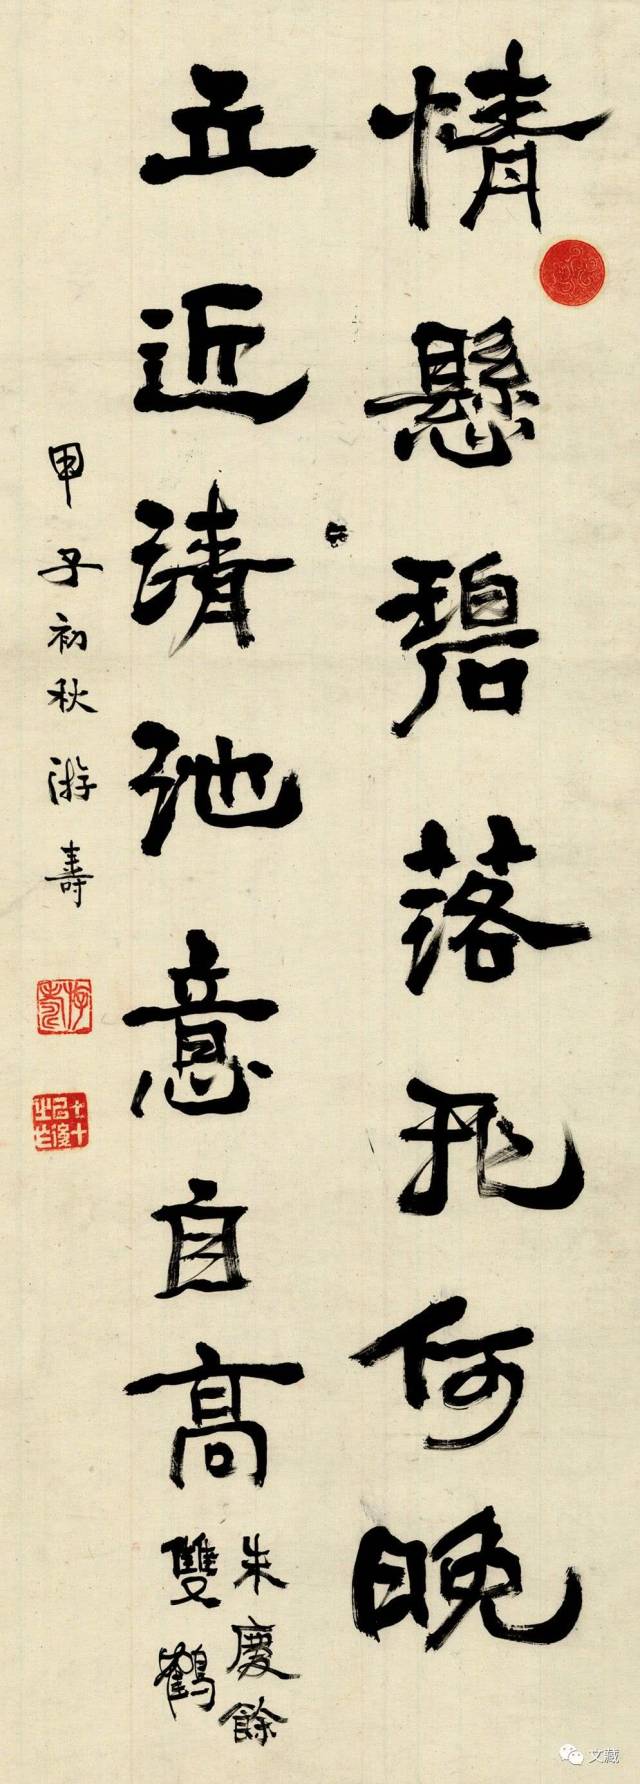 情懸碧落飛何晚
立近清池意自高
朱慶餘
雙鶴
甲子初秋游壽
游壽
文藏